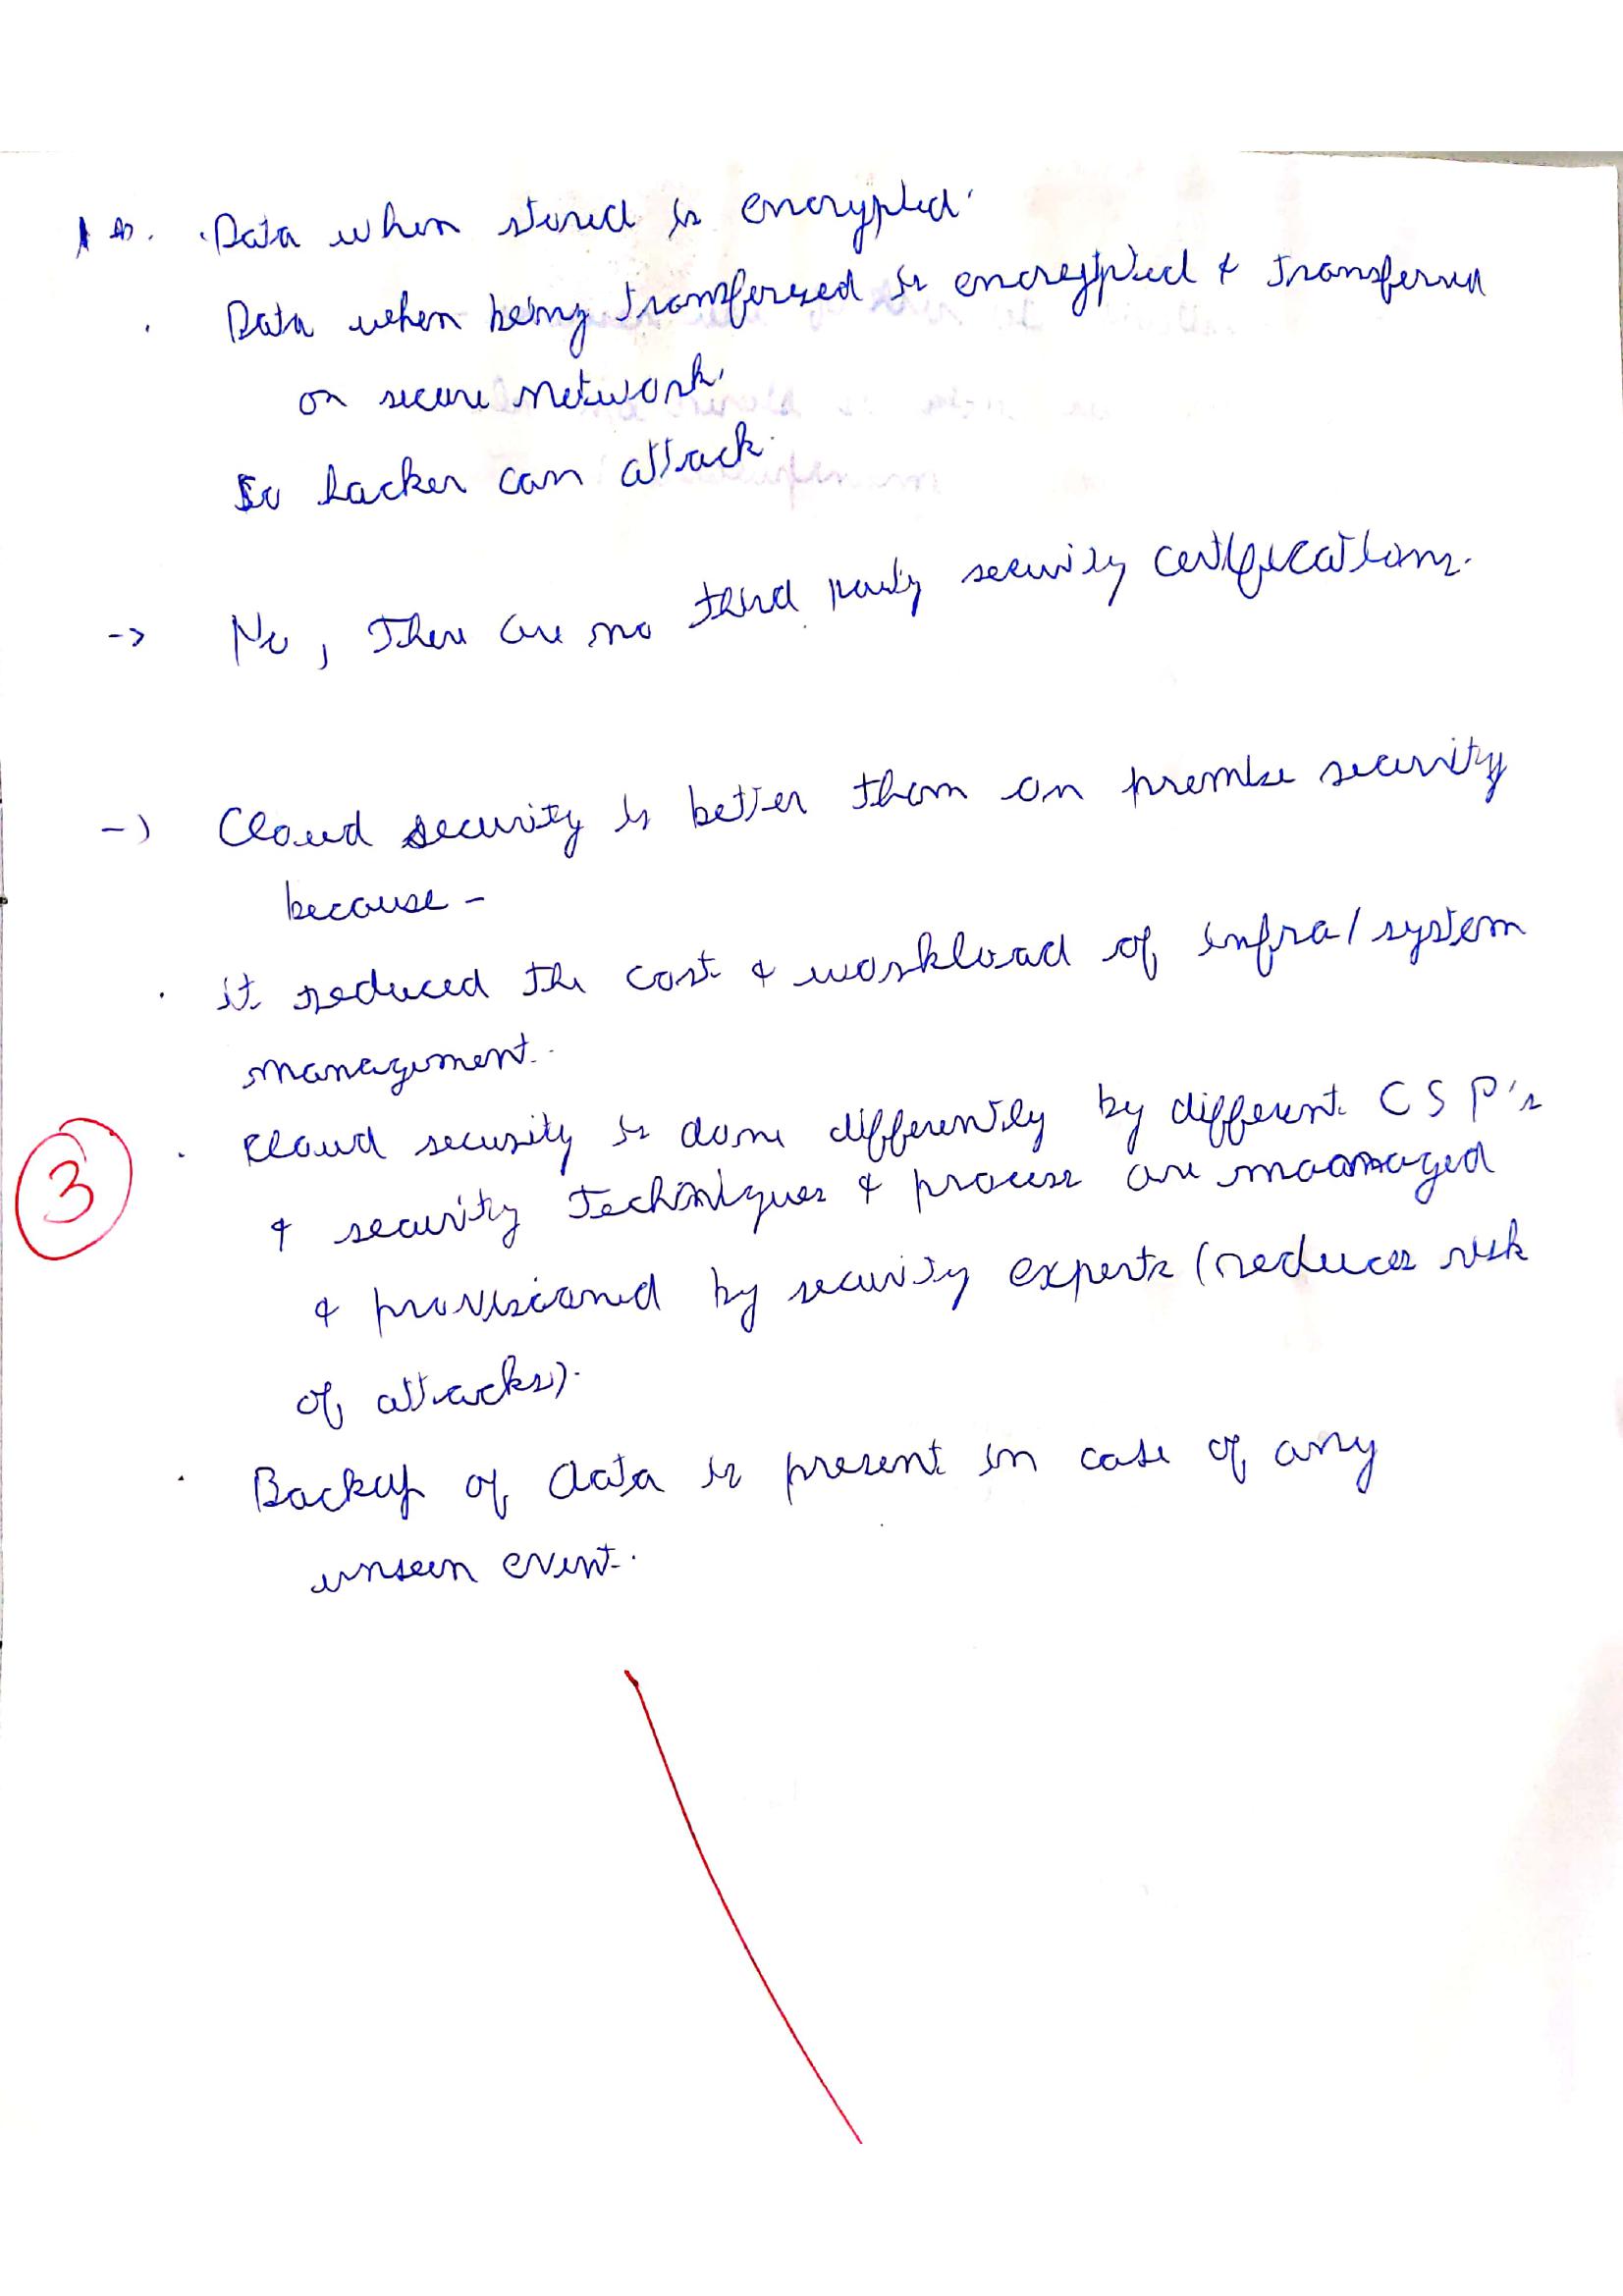 1 b. . Data when stored is encrypted.
. Data when being transferred is encrypted & transferred
on secure network.
So hacker can attack.
-> No, There are no third party security certifications.
-> Cloud security is better then on premise security
because -
. it reduced the cost & workload of infra/system
management.
. Cloud security is done differently by different CSP's
3
& security techniques & process are maanaged
& provisioned by security experts (reduces risk
of attacks).
. Backup of data is present in case of any
unseen event.